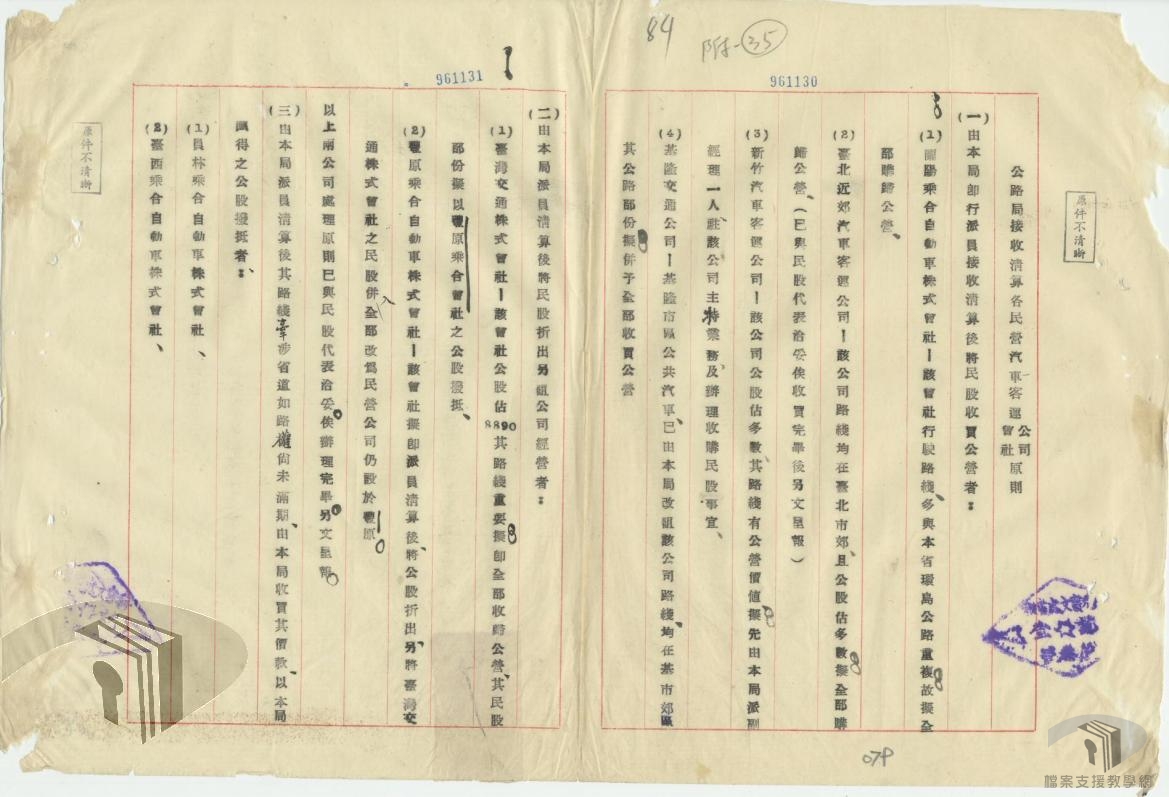 84
附-35
961130
961131
原件不清晰
公路局接收清算各民營汽車客運公司會社原則
(一)由本局即行派員接收清算後將民股收買公營者:
(1)南陽乘合自動車株式會社—該會社行駛路綫、多與本省環島公路重複故擬全
部購歸公營、
(2)臺北近郊汽車客運公司—該公司路綫均在臺北市郊、且公股佔多數擬全部購
歸公營、(已與民股代表洽妥俟收買完畢後另文呈報)
(3)新竹汽車客運公司—該公司公股佔多數、其路綫有公營價値擬先由本局派副
經理一人、駐該公司主持業務及辦理收購民股事宜、
(4)基隆交通公司—基隆市區公共汽車、已由本局改組該公司路綫、均在基市郊區
其公路部份擬併予全部收買公營
(二)由本局派員清算後將民股折出另組公司經營者:
(1)臺灣交通株式會社—該會社公股佔8890其路綫重要擬卽全部收歸公營、其民股
部份擬以豐原乘合會社之公股撥抵、
(2)豐原乘合自動車株式會社—該會社擬卽派員清算後、將公股折出、另將臺灣交
通株式會社之民股併入全部改爲民營公司仍設於豐原。
以上兩公司處理原則已與民股代表洽妥。俟辦理完畢另文呈報。
(三)由本局派員清算後其路綫牽涉省道如路權尚未滿期、由本局收買其價款、以本局
應得之公股撥抵者:
(1)員林乘合自動車株式會社、
(2)臺西乘合自動車株式會社、
原件不清晰
079
檔案支援教學網